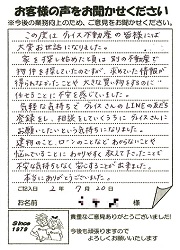 お客様の声をお聞かせください
※今後の業務向上のため、ご意見をお聞かせください。
この度はグレイス不動産の皆様には
大変お世話になりました。
家を探し始めた頃は別の不動産で
物件を探していたのですが、求めていた情報が
得られなかったり、大きな買い物をするのに
任せることに不安を感じていました。
気軽な気持ちでグレイスさんのLINEの友だち
登録をし、相談していくうちにグレイスさんに
お願いしたいという気持ちになりました。
建物のこと、ローンのことなどわからないことや
悩んでいることにわかりやすく教えて下さったことで
不安な気持ちもなく家を買うことが出来ました。
本当にありがとうございました。
ご記入日 2年 7月 20日
お名前
Since
1979
貴重なご意見ありがとうございました!
今後も頑張りますので
よろしくお願いいたします